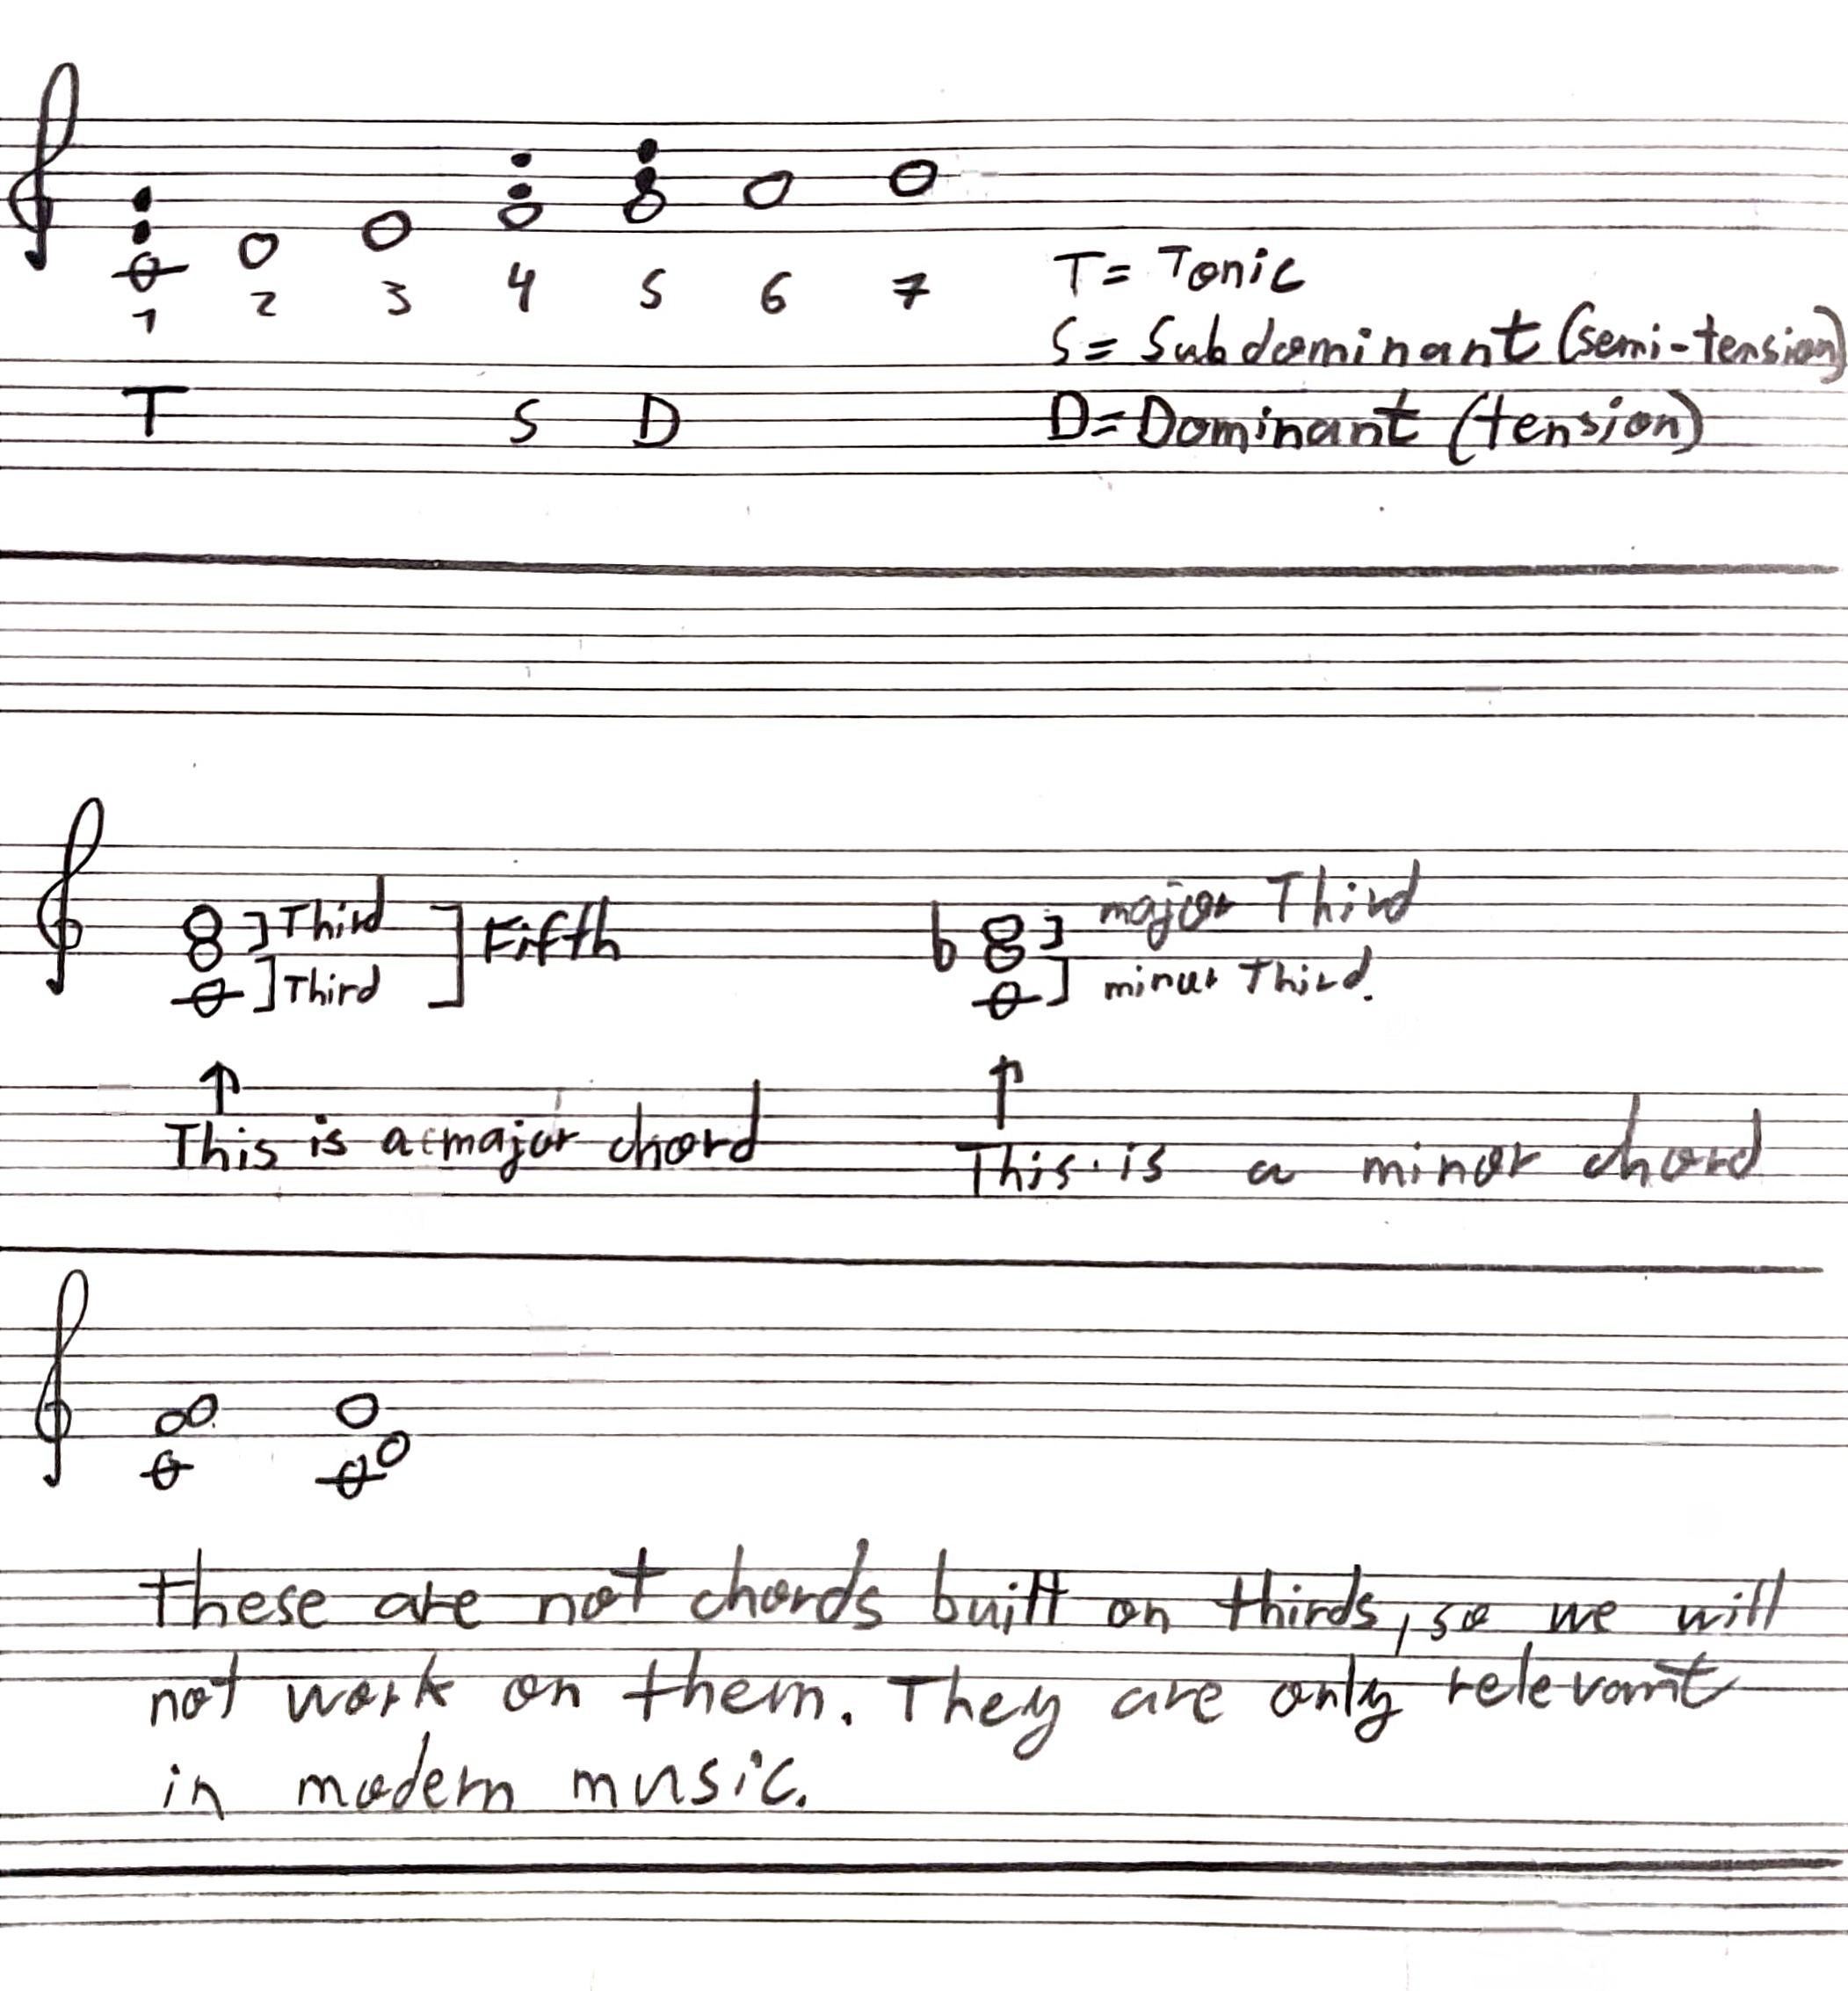 1 2 3 4 5 6 7
T = Tonic
S = Subdominant (semi-tension)
T S D
D = Dominant (tension)
] Third ] Fifth
] Third
b ] major Third
] minor Third.
↑ ↑
This is a major chord
This is a minor chord
These are not chords built on thirds, so we will
not work on them. They are only relevant
in modern music.